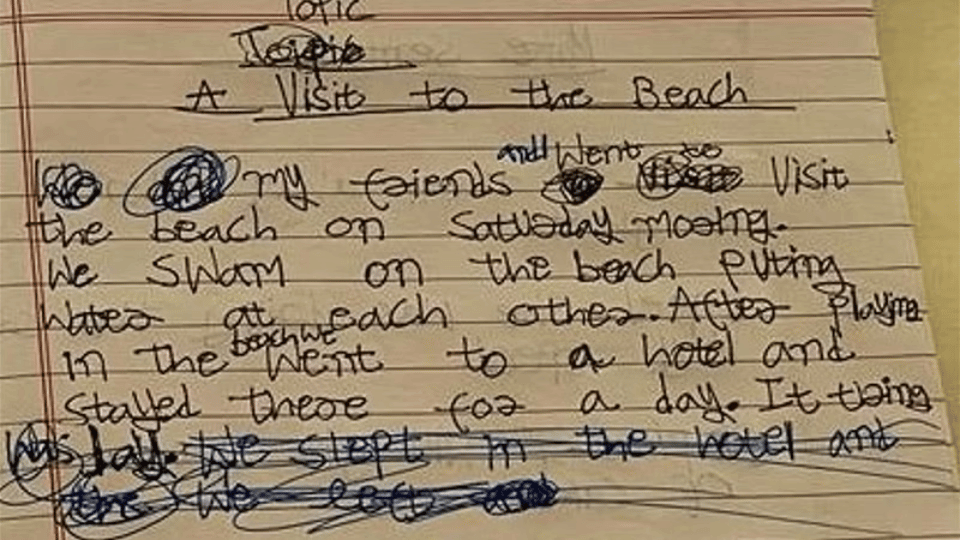 Topic
A Visit to the Beach
my friends and went to visit
the beach on Saturday moring.
We swam on the beach puting
water at each other. After playing
in the beach we went to a hotel and
stayed there for a day. It tring
was
We slept in the hotel and
the We